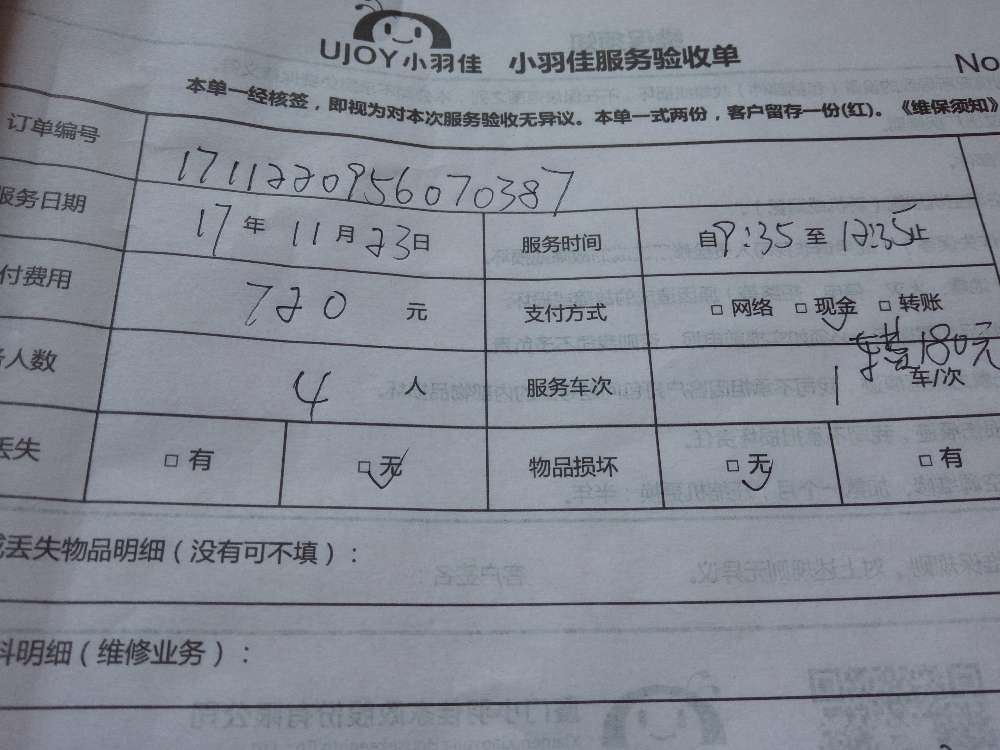 UJOY小羽佳 小羽佳服务验收单 No
本单一经核签，即视为对本次服务验收无异议。本单一式两份，客户留存一份(红)。《维保须知》
订单编号 1711220956070387
服务日期 17年 11月 23日 服务时间 自9:35 至 12:35止
付费用 720 元 支付方式 □ 网络 □ 现金 □ 转账
人数 4 人 服务车次 1 车/次
180元
丢失 □ 有 □ 无 物品损坏 □ 无 □ 有
丢失物品明细（没有可不填）：
料明细（维修业务）：